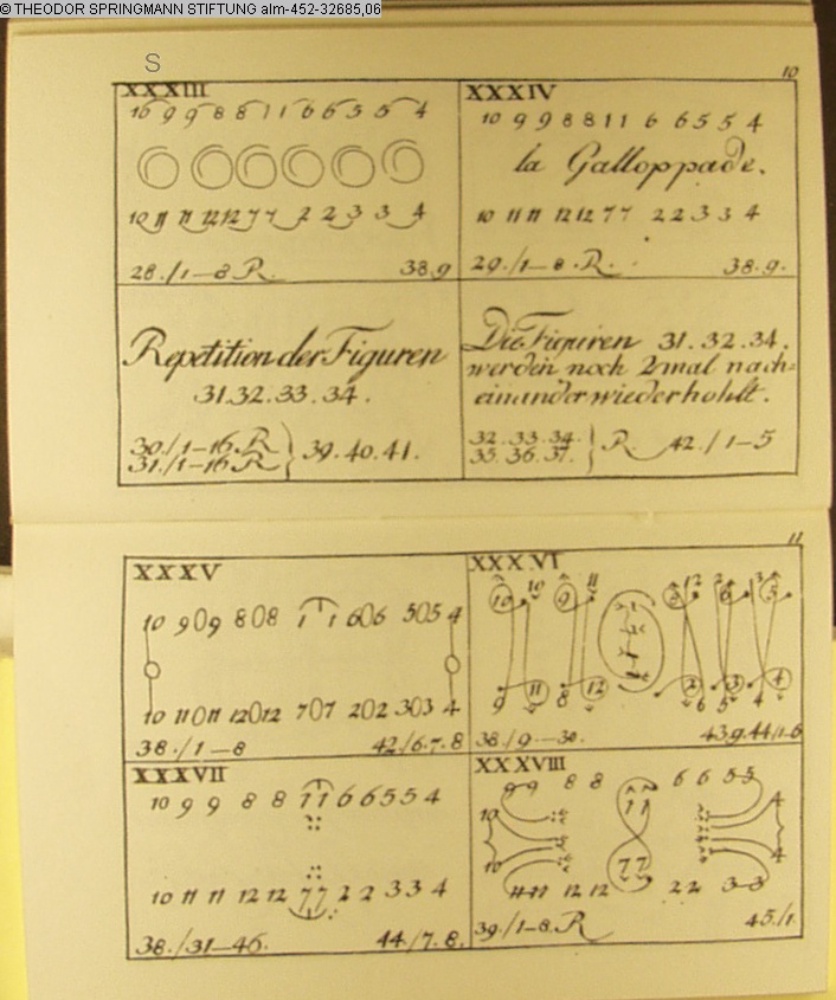 © THEODOR SPRINGMANN STIFTUNG alm-452-32685,06
S
10
XXXIII
10 9 9 8 8 1 1 6 6 5 5 4
10 11 11 12 12 7 7 2 2 3 3 4
28./1—8 R. 38.9
XXXIV
10 9 9 8 8 1 1 6 6 5 5 4
la Galloppade.
10 11 11 12 12 7 7 2 2 3 3 4
29./1—8.R. 38.9.
Repetition der Figuren
31.32.33.34.
30./1—16.R
31./1—16 R } 39.40.41.
Die Figuren 31.32.34.
werden noch 2mal nach=
einander wiederhohlt.
32.33.34.
35.36.37. } R 42./1—5
11
XXXV
10 9 0 9 8 0 8 1 1 6 0 6 5 0 5 4
10 11 0 11 12 0 12 7 0 7 2 0 2 3 0 3 4
38./1—8 42./6.7.8
XXXVI
10 10 9 11 12 2 6 3 5
9 11 8 12 2 6 3 5 4 4
38./9—30. 43.9.44/1-6
XXXVII
10 9 9 8 8 1 1 6 6 5 5 4
10 11 11 12 12 7 7 2 2 3 3 4
38./31—46. 44./7.8.
XXXVIII
9 9 8 8 1 1 6 6 5 5
10 4
10 4
11 11 12 12 7 7 2 2 3 3
39./1—8.R 45./1.